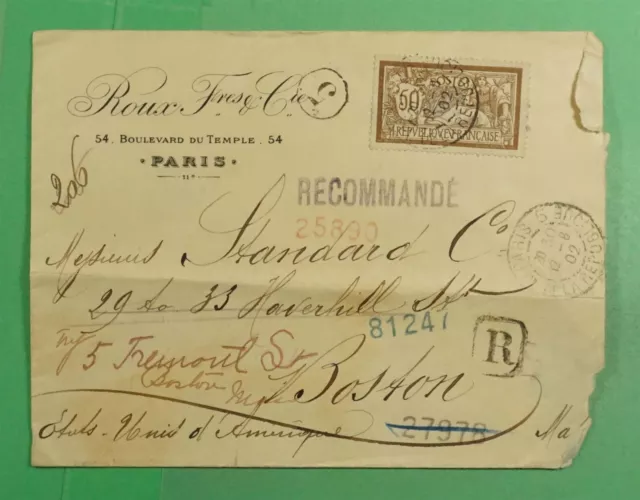 Roux Fres & Cie
5
54. BOULEVARD DU TEMPLE. 54
• PARIS •
50
REPUBLIQUE FRANÇAISE
206
RECOMMANDÉ
25890
Messieurs Standard Co
29 to 33 Haverhill St
81247
try 5 Tremont St
Boston
R
Boston
États-Unis d'Amérique
27978
PARIS
02